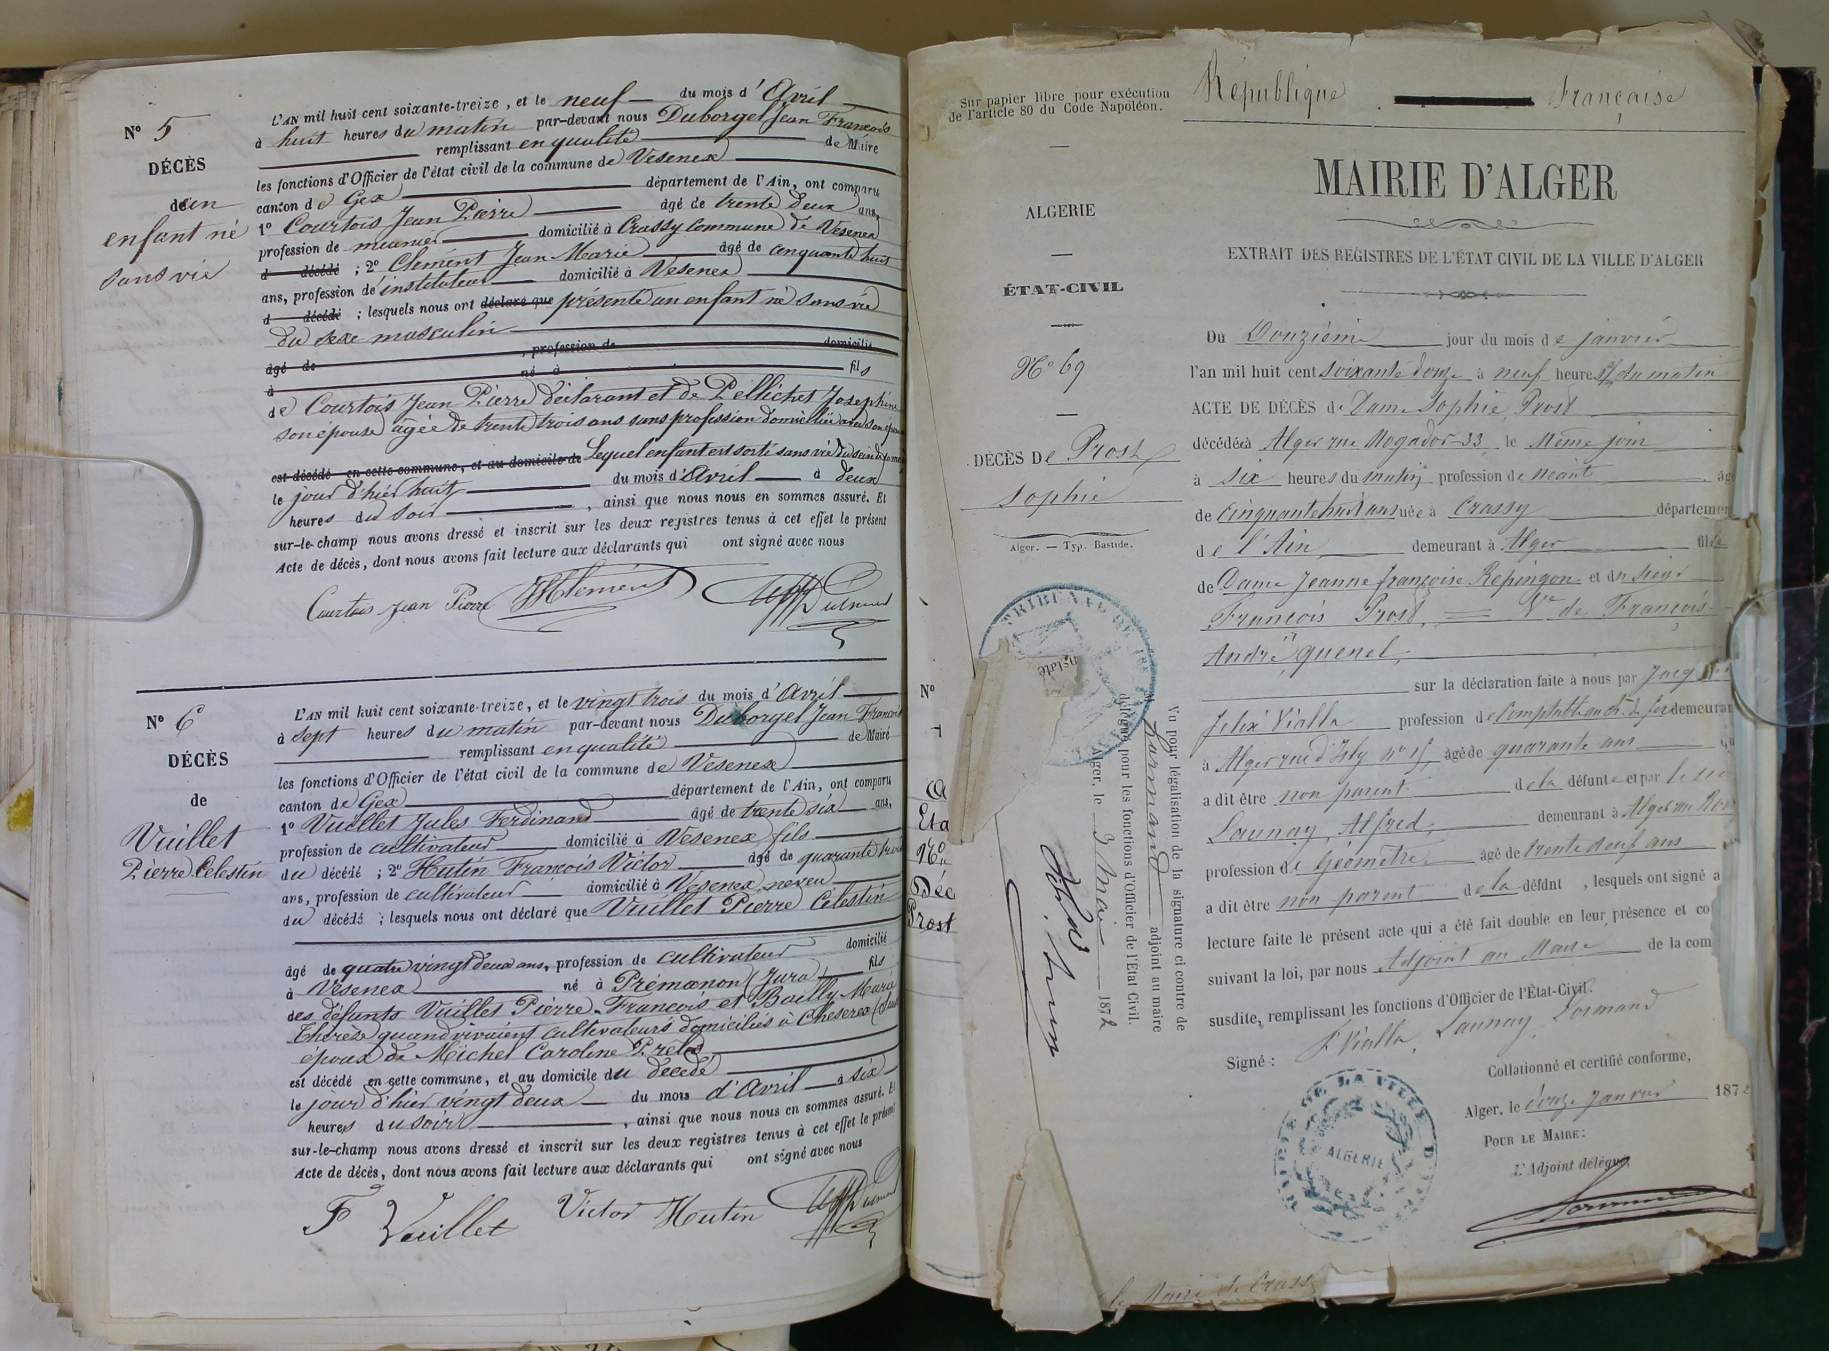 N° 5
DÉCÈS
d'un
enfant né
sans vie
L'AN mil huit cent soixante-treize, et le neuf du mois d'Avril
à huit heures du matin par-devant nous Duborgel Jean François
remplissant en qualité de Maire
les fonctions d'Officier de l'état civil de la commune de Vesenex
canton de Gex département de l'Ain, ont comparu
1° Courtois Jean Pierre âgé de trente deux ans,
profession de meunier domicilié à Crassy commune de Vesenex
d décédé ; 2° Clément Jean Marie âgé de cinquante huit
ans, profession de instituteur domicilié à Vesenex
d décédé ; lesquels nous ont déclaré que présenté un enfant né sans vie
du sexe masculin
âgé de , profession de domicilié
à né à fils
de Courtois Jean Pierre déclarant et de Pellichet Josephine
son épouse agée de trente trois ans sans profession domiciliée avec son époux
est décédé en cette commune, et au domicile de Lequel enfant est sorti sans vie du sein de sa mère
le jour d'hier huit du mois d'Avril à deux
heures du soir , ainsi que nous nous en sommes assuré. Et
sur-le-champ nous avons dressé et inscrit sur les deux registres tenus à cet effet le présent
Acte de décès, dont nous avons fait lecture aux déclarants qui ont signé avec nous
Courtois Jean Pierre JM Clément
N° 6
DÉCÈS
de
Vuillet
Pierre Célestin
L'AN mil huit cent soixante-treize, et le vingt trois du mois d'Avril
à sept heures du matin par-devant nous Duborgel Jean François
remplissant en qualité de Maire
les fonctions d'Officier de l'état civil de la commune de Vesenex
canton de Gex département de l'Ain, ont comparu
1° Vuillet Jules Ferdinand âgé de trente six ans,
profession de cultivateur domicilié à Vesenex fils
du décédé ; 2° Hutin François Victor âgé de quarante trois
ans, profession de cultivateur domicilié à Vesenex neveu
du décédé ; lesquels nous ont déclaré que Vuillet Pierre Célestin
âgé de quatre vingt deux ans, profession de cultivateur domicilié
à Vesenex né à Prémanon (Jura) fils
des défunts Vuillet Pierre-François et Bailly Marie
Thérèse quand vivaient cultivateurs domiciliés à Cheserex
époux de Michel Caroline
est décédé en cette commune, et au domicile du décédé
le jour d'hier vingt deux du mois d'Avril à six
heures du soir , ainsi que nous nous en sommes assuré. Et
sur-le-champ nous avons dressé et inscrit sur les deux registres tenus à cet effet le présent
Acte de décès, dont nous avons fait lecture aux déclarants qui ont signé avec nous
F Vuillet Victor Hutin
N°
Eta
Déc
Prost
Sur papier libre pour exécution
de l'article 80 du Code Napoléon.
ALGERIE
ÉTAT-CIVIL
N° 69
DÉCÈS De Prost
Sophie
Alger. — Typ. Bastide.
Vu pour légalisation de la signature ci contre de
M. Lormand adjoint au maire
délégué pour les fonctions d'officier de l'État Civil.
Alger, le 3 1872
République Française
MAIRIE D'ALGER
EXTRAIT DES REGISTRES DE L'ÉTAT CIVIL DE LA VILLE D'ALGER
Du Douzième jour du mois de janvier
l'an mil huit cent soixante douze à neuf heures du matin
ACTE DE DÉCÈS de Dame Sophie Prost
décédée à Alger rue Mogador 33 le même jour
à six heures du matin profession de néant âgé
de cinquante huit ans née à Crassy départemen
de l'Ain demeurant à Alger fille
de Dame Jeanne françoise Repingon et du sieur
François Prost, = Ve de François
André quenel,
sur la déclaration faite à nous par Jacques
felix Vialla profession de Comptable au ch. de fer demeurant
à Alger rue d'Isly n° 15, âgé de quarante ans
a dit être non parent de la défunte et par le sieur
Launay, Alfred, demeurant à Alger rue
profession de Géomètre âgé de trente neuf ans
a dit être non parent de la défunt , lesquels ont signé a
lecture faite le présent acte qui a été fait double en leur présence et co
suivant la loi, par nous Adjoint au Maire de la com
susdite, remplissant les fonctions d'Officier de l'État-Civil.
Signé : F Vialla, Launay, Lormand
Collationné et certifié conforme,
Alger, le douze Janvier 1872
POUR LE MAIRE:
L'Adjoint délégué,
MAIRIE DE LA VILLE D'ALGER
ALGERIE
Lormand